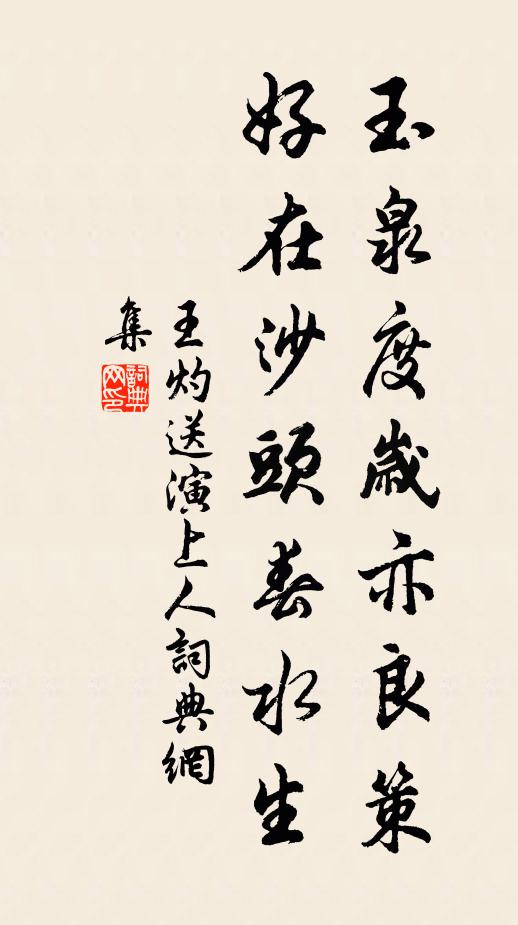 玉泉度歳亦良策
好在沙頭春水生
王灼送演上人詞典網
集
詞典网印